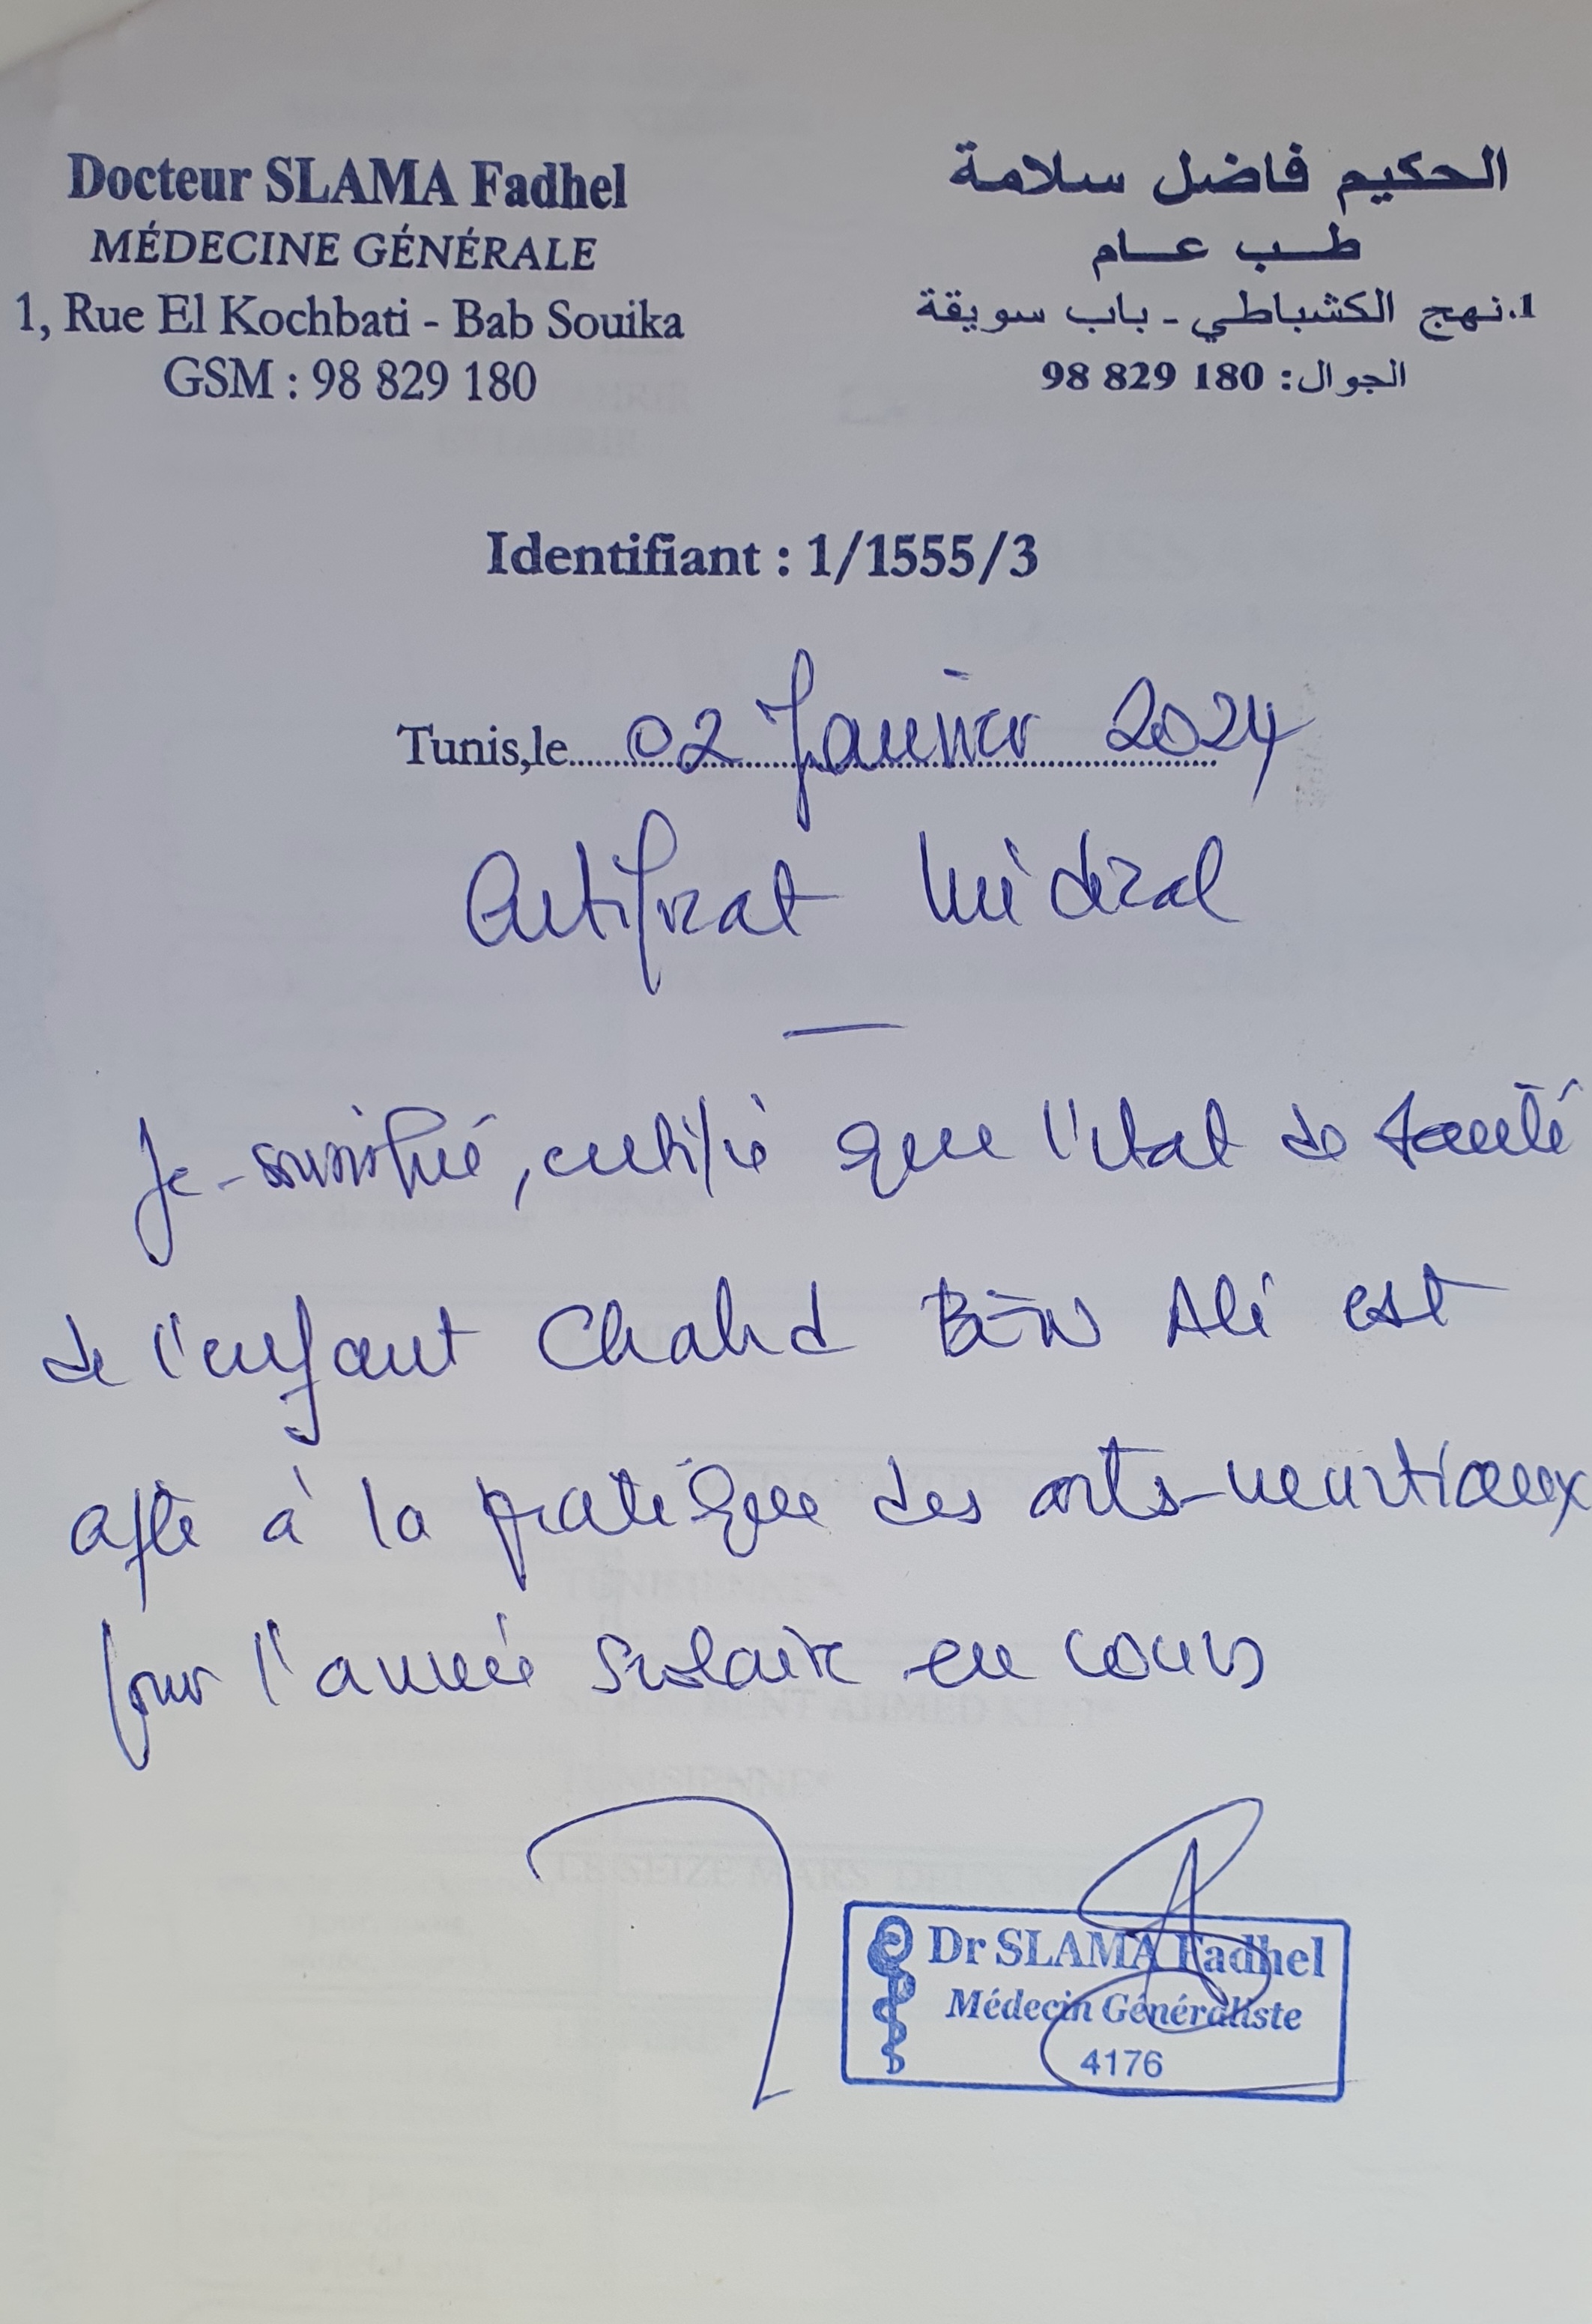 Docteur SLAMA Fadhel
MÉDECINE GÉNÉRALE
1, Rue El Kochbati - Bab Souika
GSM : 98 829 180
الحكيم فاضل سلامة
طب عام
1.نهج الكشباطي - باب سويقة
الجوال: 98 829 180
Identifiant : 1/1555/3
Tunis,le 02 Janvier 2024
Certificat Médical
Je-soussigné, certifie que l'état de santé
de l'enfant Chahd BEN Ali est
apte à la pratique des arts-martiaux
pour l'année scolaire en cours
Dr SLAMA Fadhel
Médecin Généraliste
4176